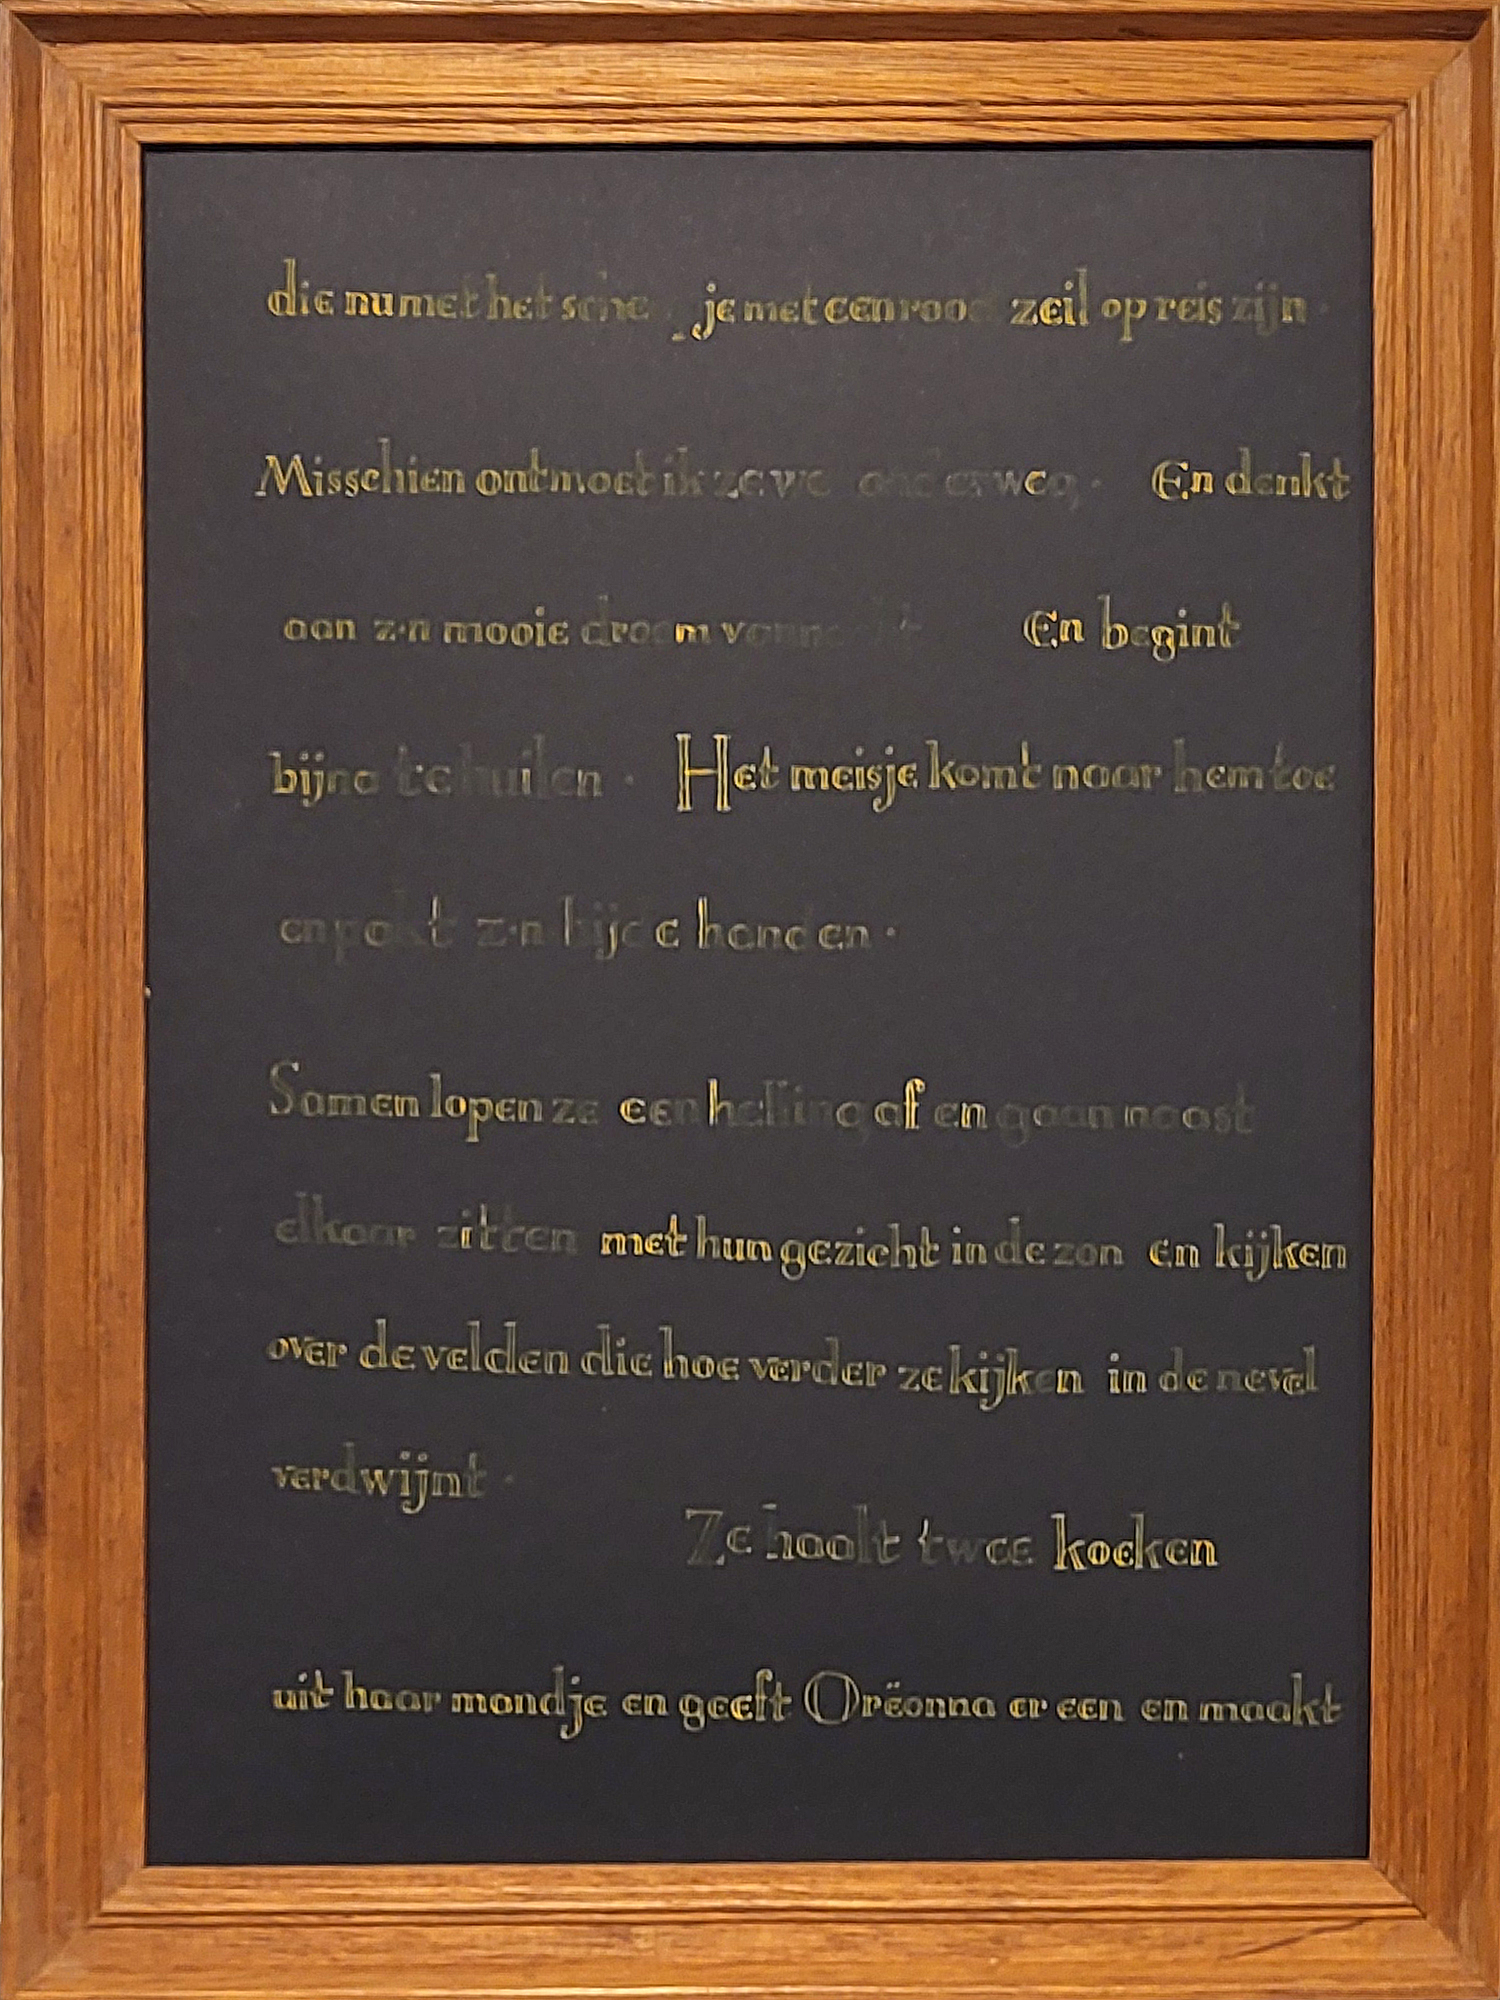 die nu met het sche je met een rood zeil op reis zijn.
Misschien ontmoet ik ze we onderweg. En denkt
aan z·n mooie droom vannacht En begint
bijna te huilen. Het meisje komt naar hem toe
en pakt z·n bijde handen.
Samen lopen ze een helling af en gaan naast
elkaar zitten met hun gezicht in de zon en kijken
over de velden die hoe verder ze kijken in de nevel
verdwijnt.
Ze haalt twee koeken
uit haar mandje en geeft Orëonna er een en maakt